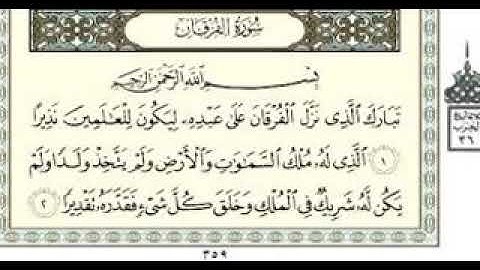 سُورَةُ الفُرْقَانِ
بِسْمِ اللَّهِ الرَّحْمَٰنِ الرَّحِيمِ
تَبَارَكَ الَّذِي نَزَّلَ الْفُرْقَانَ عَلَىٰ عَبْدِهِ لِيَكُونَ لِلْعَالَمِينَ نَذِيرًا
١ الَّذِي لَهُ مُلْكُ السَّمَاوَاتِ وَالْأَرْضِ وَلَمْ يَتَّخِذْ وَلَدًا وَلَمْ
يَكُن لَّهُ شَرِيكٌ فِي الْمُلْكِ وَخَلَقَ كُلَّ شَيْءٍ فَقَدَّرَهُ تَقْدِيرًا ٢
٣٥٩
الحزب
٣٦